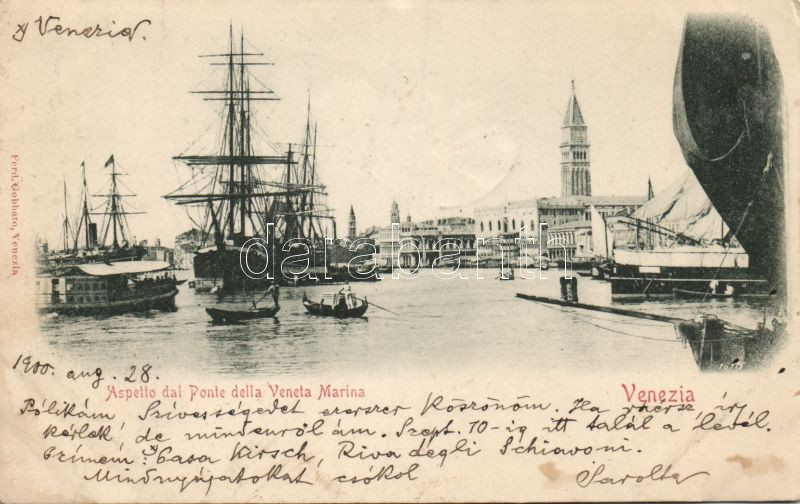 Venezia.
Ferd. Gobbato, Venezia
darabanth.com
1900. aug. 28.
Aspetto dal Ponte della Veneta Marina
Venezia
Pólikám Szívességedet ezerszer Köszönöm. Ha ráérsz irj
kérlek, de mindenről ám. Szept. 10-ig itt talál a levél.
Czímem: "Casa Kirsch, Riva degli Schiavoni.
Mindnyájatokat csókol
Sarolta